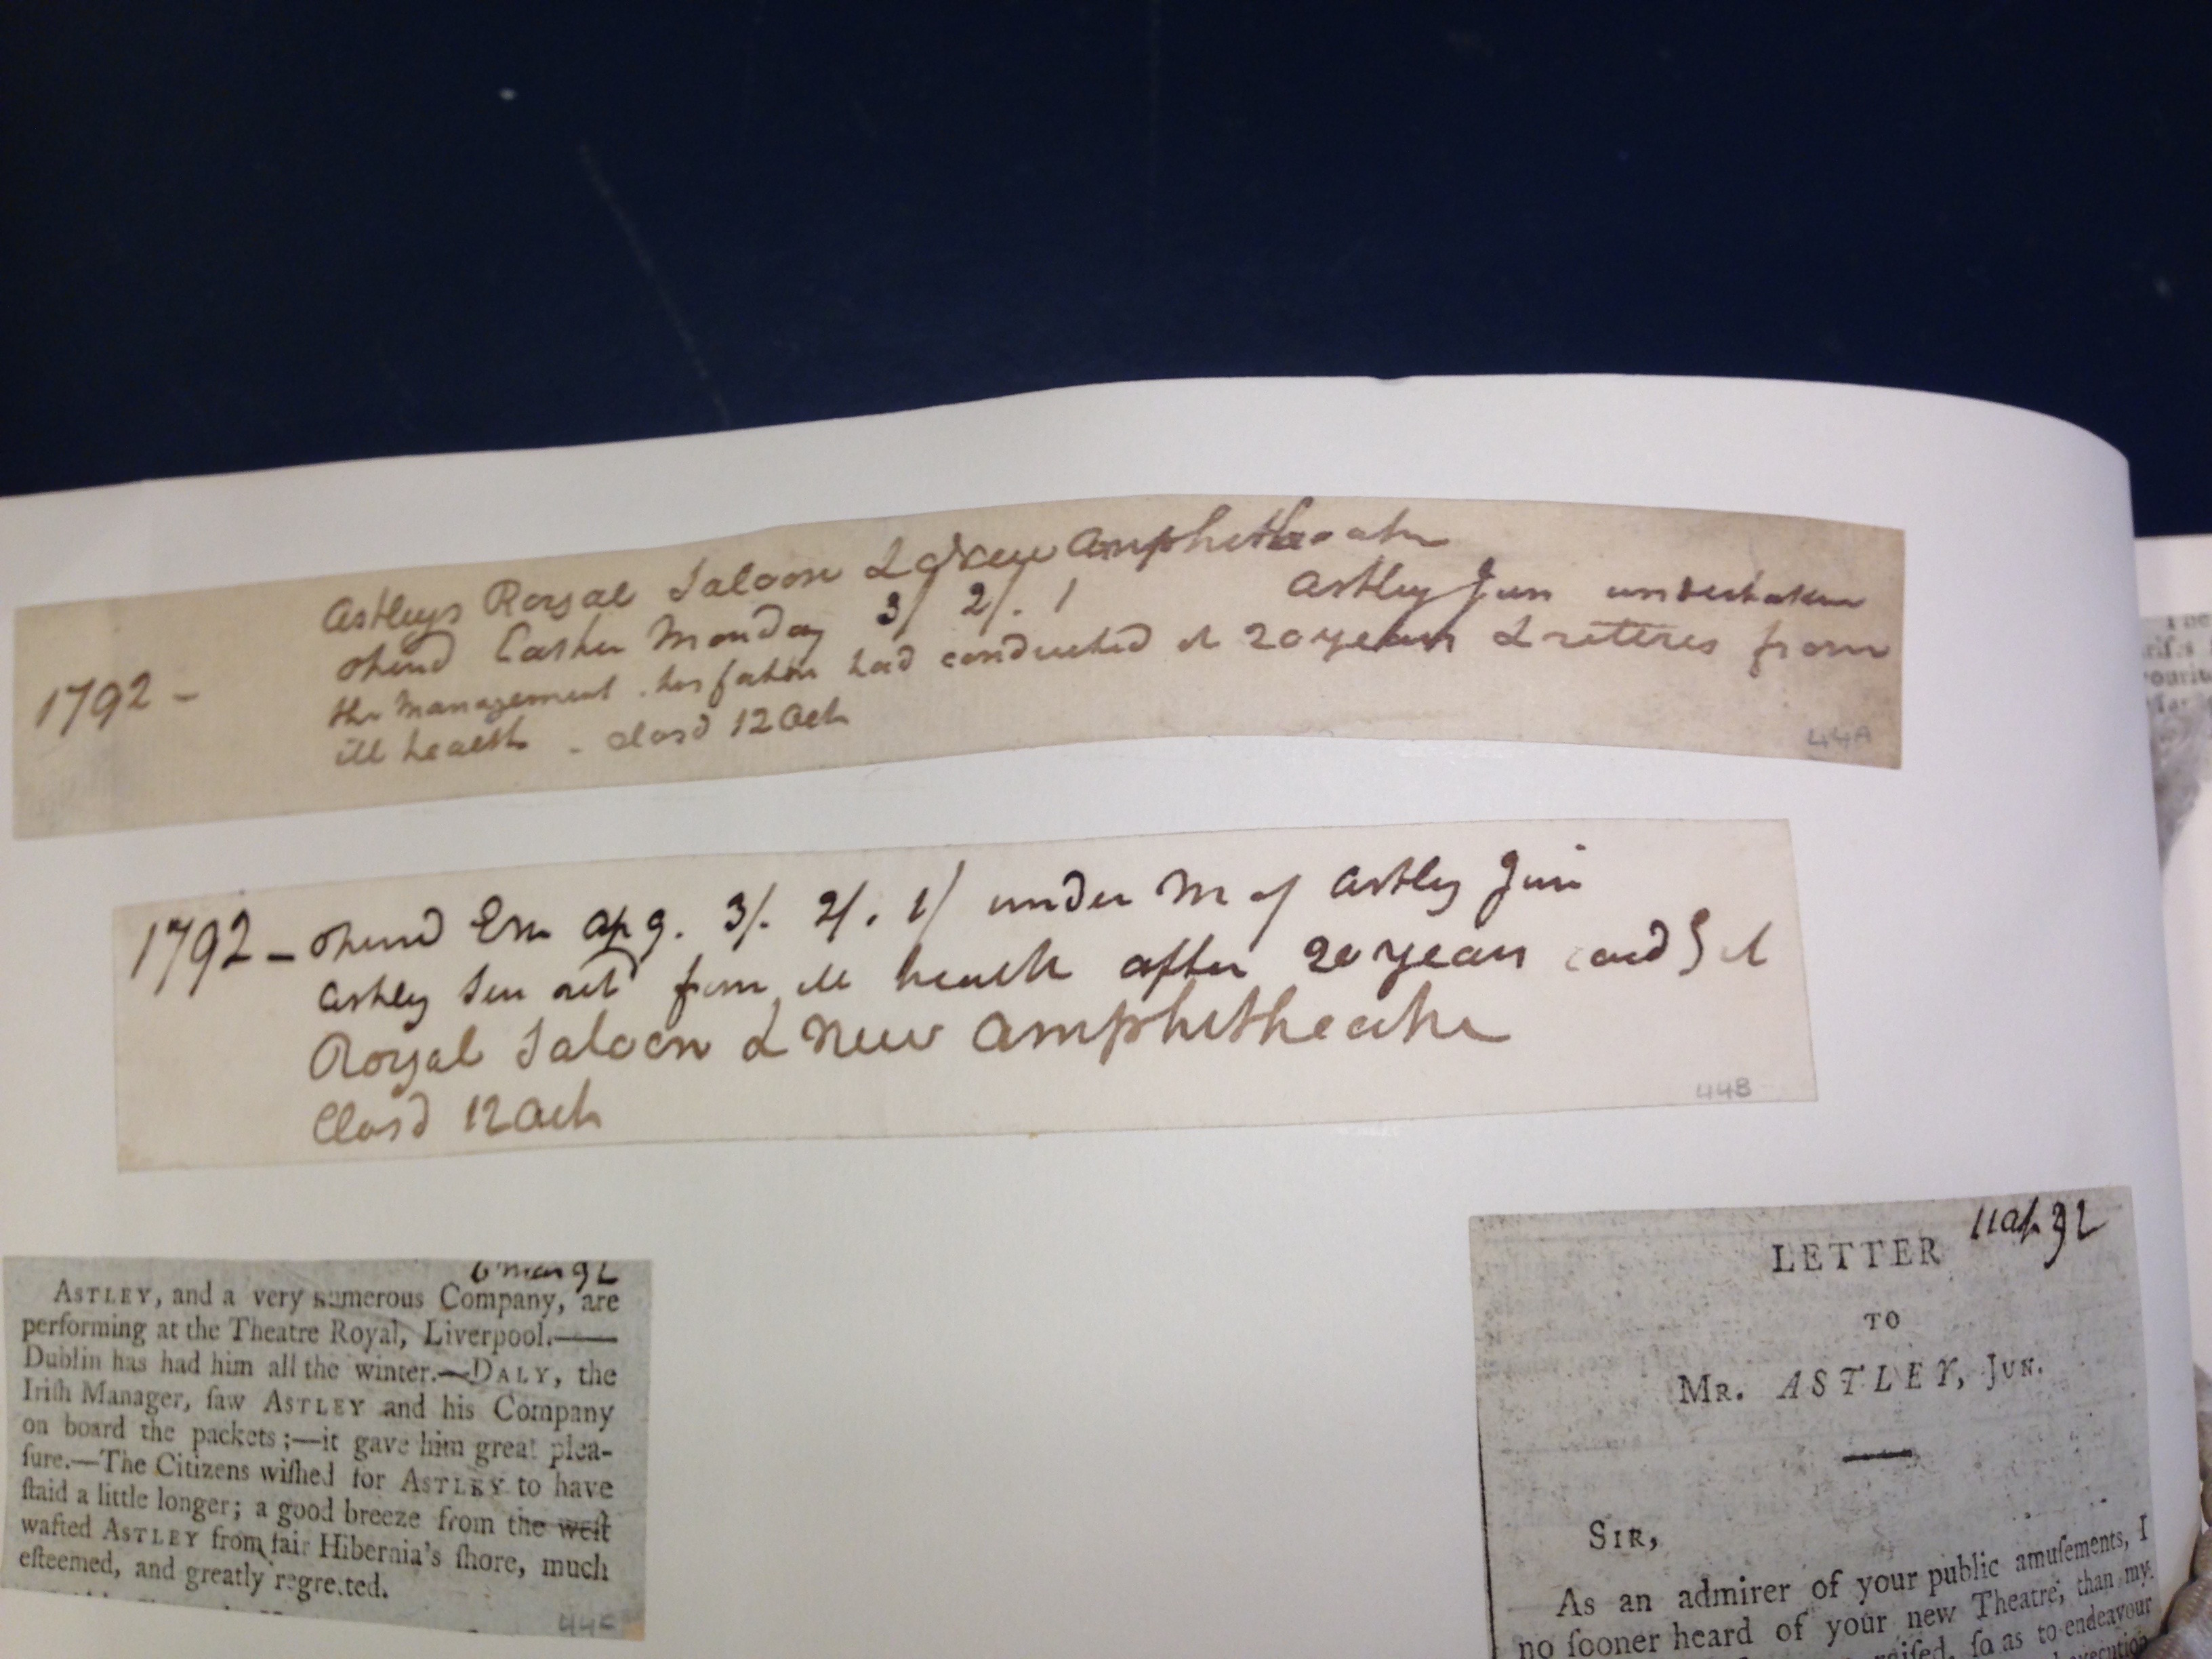 Astleys Royal Saloon & New Amphitheatre
1792 - opend Easter Monday 3/ 2/. 1 Astley Jun undertakes
the management . his father had conducted it 20 years & retires from
ill health - closd 12 Oct
44A
1792 - opend Em Ap 9. 3/. 2/. 1/ under M of Astley Jun
Astley Sen retd from ill health after 20 years it
Royal Saloon & New Amphitheatre
Closd 12 Oct
44B
6 Mar 92
ASTLEY, and a very numerous Company, are
performing at the Theatre Royal, Liverpool.——
Dublin has had him all the winter.—DALY, the
Iriſh Manager, ſaw ASTLEY and his Company
on board the packets;—it gave him great plea-
ſure.—The Citizens wiſhed for ASTLEY to have
ſtaid a little longer; a good breeze from the weſt
wafted ASTLEY from fair Hibernia's ſhore, much
eſteemed, and greatly regretted.
11 Ap 92
LETTER
TO
MR. ASTLEY, JUN.
SIR,
As an admirer of your public amuſements, I
no ſooner heard of your new Theatre, than my
raiſed, ſo as to endeavour
execution